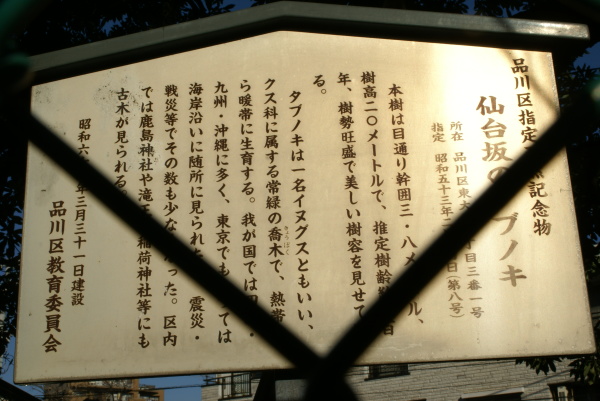 品川区指定 然記念物
仙台坂の ブノキ
所在 品川区東大 丁目三番一号
指定 昭和五十三年 日(第八号)
本樹は目通り幹囲三・八メ ル、
樹高二〇メートルで、推定樹齢 百
年、樹勢旺盛で美しい樹容を見せて
る。
タブノキは一名イヌグスともいい、
クス科に属する常緑の喬木で、熱帯
ら暖帯に生育する。我が国では ・
九州・沖縄に多く、東京でも ては
海岸沿いに随所に見られた 震災・
戦災等でその数も少な った。区内
では鹿島神社や滝王 稲荷神社等にも
古木が見られる
昭和六 年三月三十一日建設
品川区教育委員会